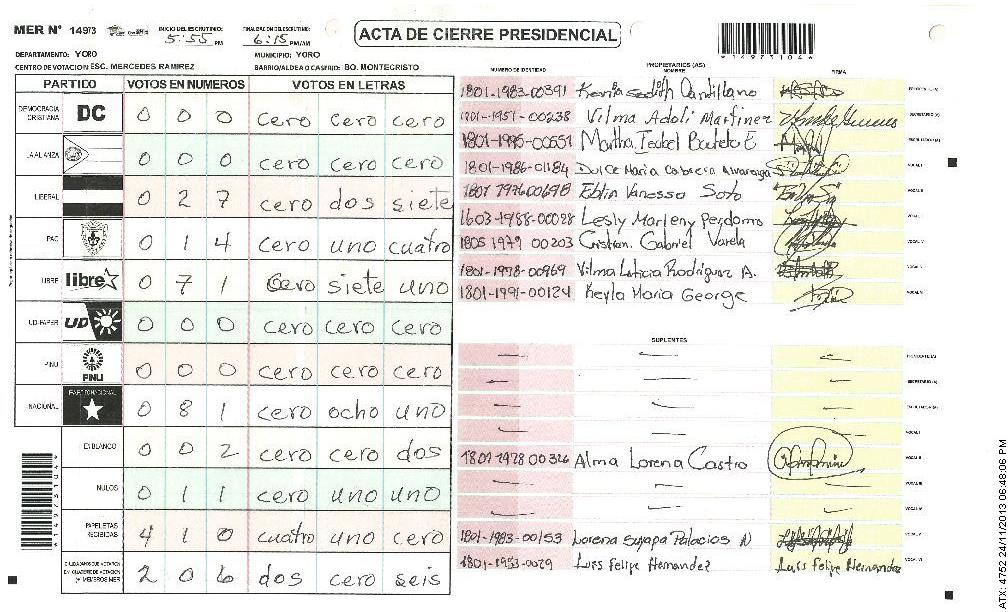 MER N° 14973
INICIO DEL ESCRUTINIO: 5:55 PM
FINALIZACION DEL ESCRUTINIO: 6:15 PM/AM
ACTA DE CIERRE PRESIDENCIAL
*149731046*
DEPARTAMENTO: YORO
MUNICIPIO: YORO
CENTRO DE VOTACION: ESC. MERCEDES RAMIREZ
BARRIO/ALDEA O CASERIO: BO. MONTECRISTO
PARTIDO VOTOS EN NUMEROS VOTOS EN LETRAS
DEMOCRACIA CRISTIANA DC 0 0 0 cero cero cero
LA ALIANZA 0 0 0 cero cero cero
LIBERAL 0 2 7 cero dos siete
PAC 0 1 4 cero uno cuatro
LIBRE libre 0 7 1 cero siete uno
UD-FAPER UD 0 0 0 cero cero cero
PINU PINU 0 0 0 cero cero cero
NACIONAL PARTIDO NACIONAL 0 8 1 cero ocho uno
EN BLANCO 0 0 2 cero cero dos
NULOS 0 1 1 cero uno uno
PAPELETAS RECIBIDAS 4 1 0 cuatro uno cero
2 0 6 dos cero seis
PROPIETARIOS (AS)
NUMERO DE IDENTIDAD NOMBRE FIRMA
1801-1983-00391
1801-1951-00238 Vilma Adoli Martinez SECRETARIO (A)
1801-1995-00551 Martha Isabel ESCRUTADOR (A)
1801-1986-01184 Dulce Maria Cabrera VOCAL I
Vanessa Soto VOCAL II
1603-1988-00028 Lesly Marleny Perdomo
1805 1979 00203 Cristian Gabriel Varela VOCAL IV
1801-1978-00969 Vilma Leticia Rodriguez A. VOCAL V
1801-1991-00124 Keyla Maria George
SUPLENTES
PRESIDENTE (A)
SECRETARIO (A)
ESCRUTADOR (A)
VOCAL I
1801-1978 00326 Alma Lorena Castro VOCAL II
VOCAL III
VOCAL IV
1801-1983-00153 Lorena Palacios N VOCAL V
1801-1953-0029 Luis Felipe Hernandez Luis Felipe Hernandez VOCAL VI
*149731046*
ATX: 4752 24/11/2013 06:48:06 PM